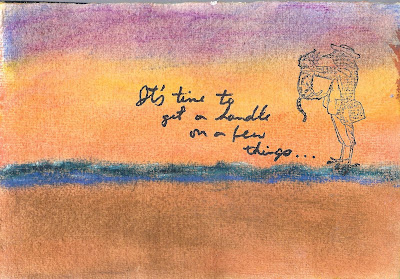 It's time to
get a handle
on a few
things...